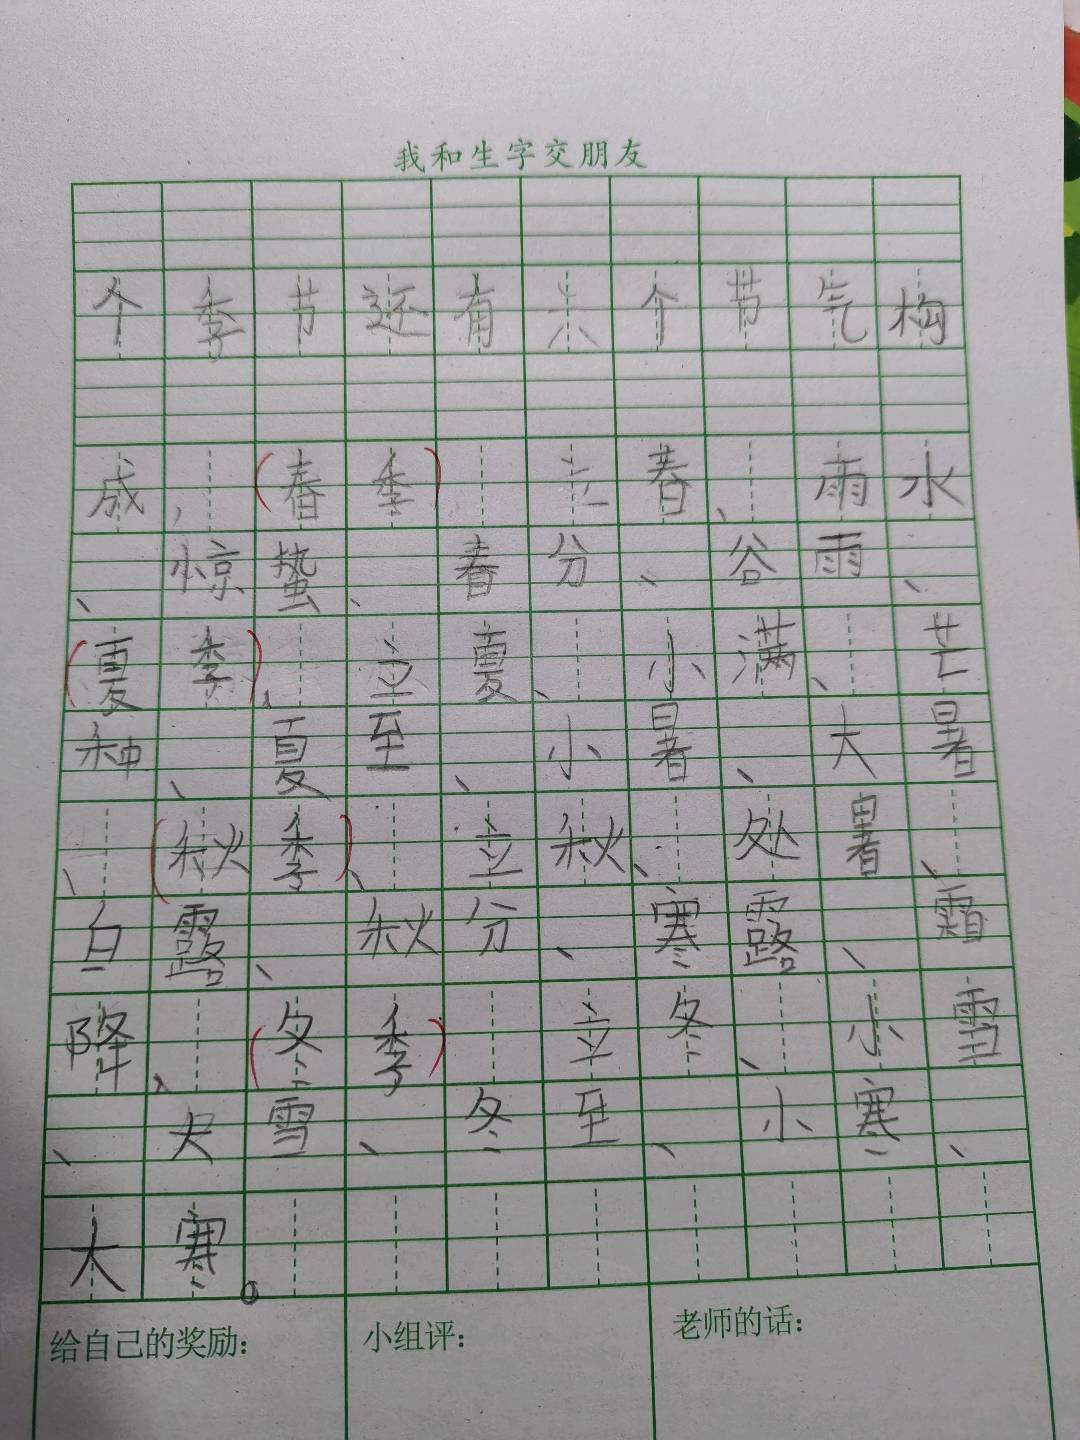 我和生字交朋友
个季节还有六个节气构
成,(春季)立春、雨水
、惊蛰、春分、谷雨、
(夏季)、立夏、小满、芒
种、夏至、小暑、大暑
、(秋季)、立秋、处暑、
白露、秋分、寒露、霜
降、(冬季)立冬、小雪
、大雪、冬至、小寒、
大寒。
给自己的奖励:
小组评:
老师的话: